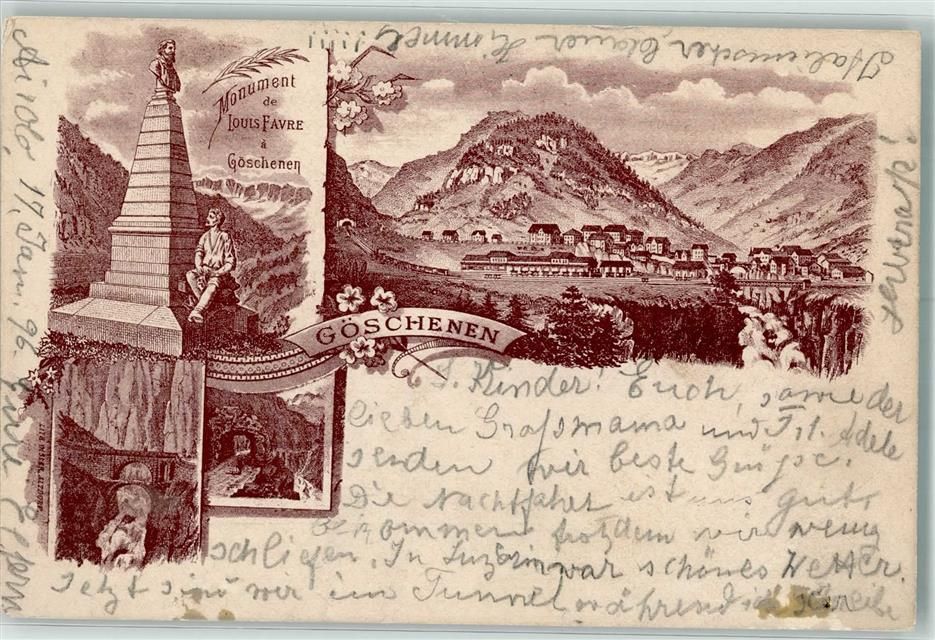 Monument
de
LOUIS FAVRE
à
Göschenen
GÖSCHENEN
Airolo 17. Jan. 96.
Italienischer blauer Himmel !!!!!
L. Kinder! Euch, sowie der
lieben Grossmama und Frl. Adele
senden wir beste Grüsse.
Die Nachtfahrt ist uns gut
bekommen trotzdem wir wenig
schliefen. In Luzern war schönes Wetter.
Jetzt sind wir im Tunnel während ich schreibe